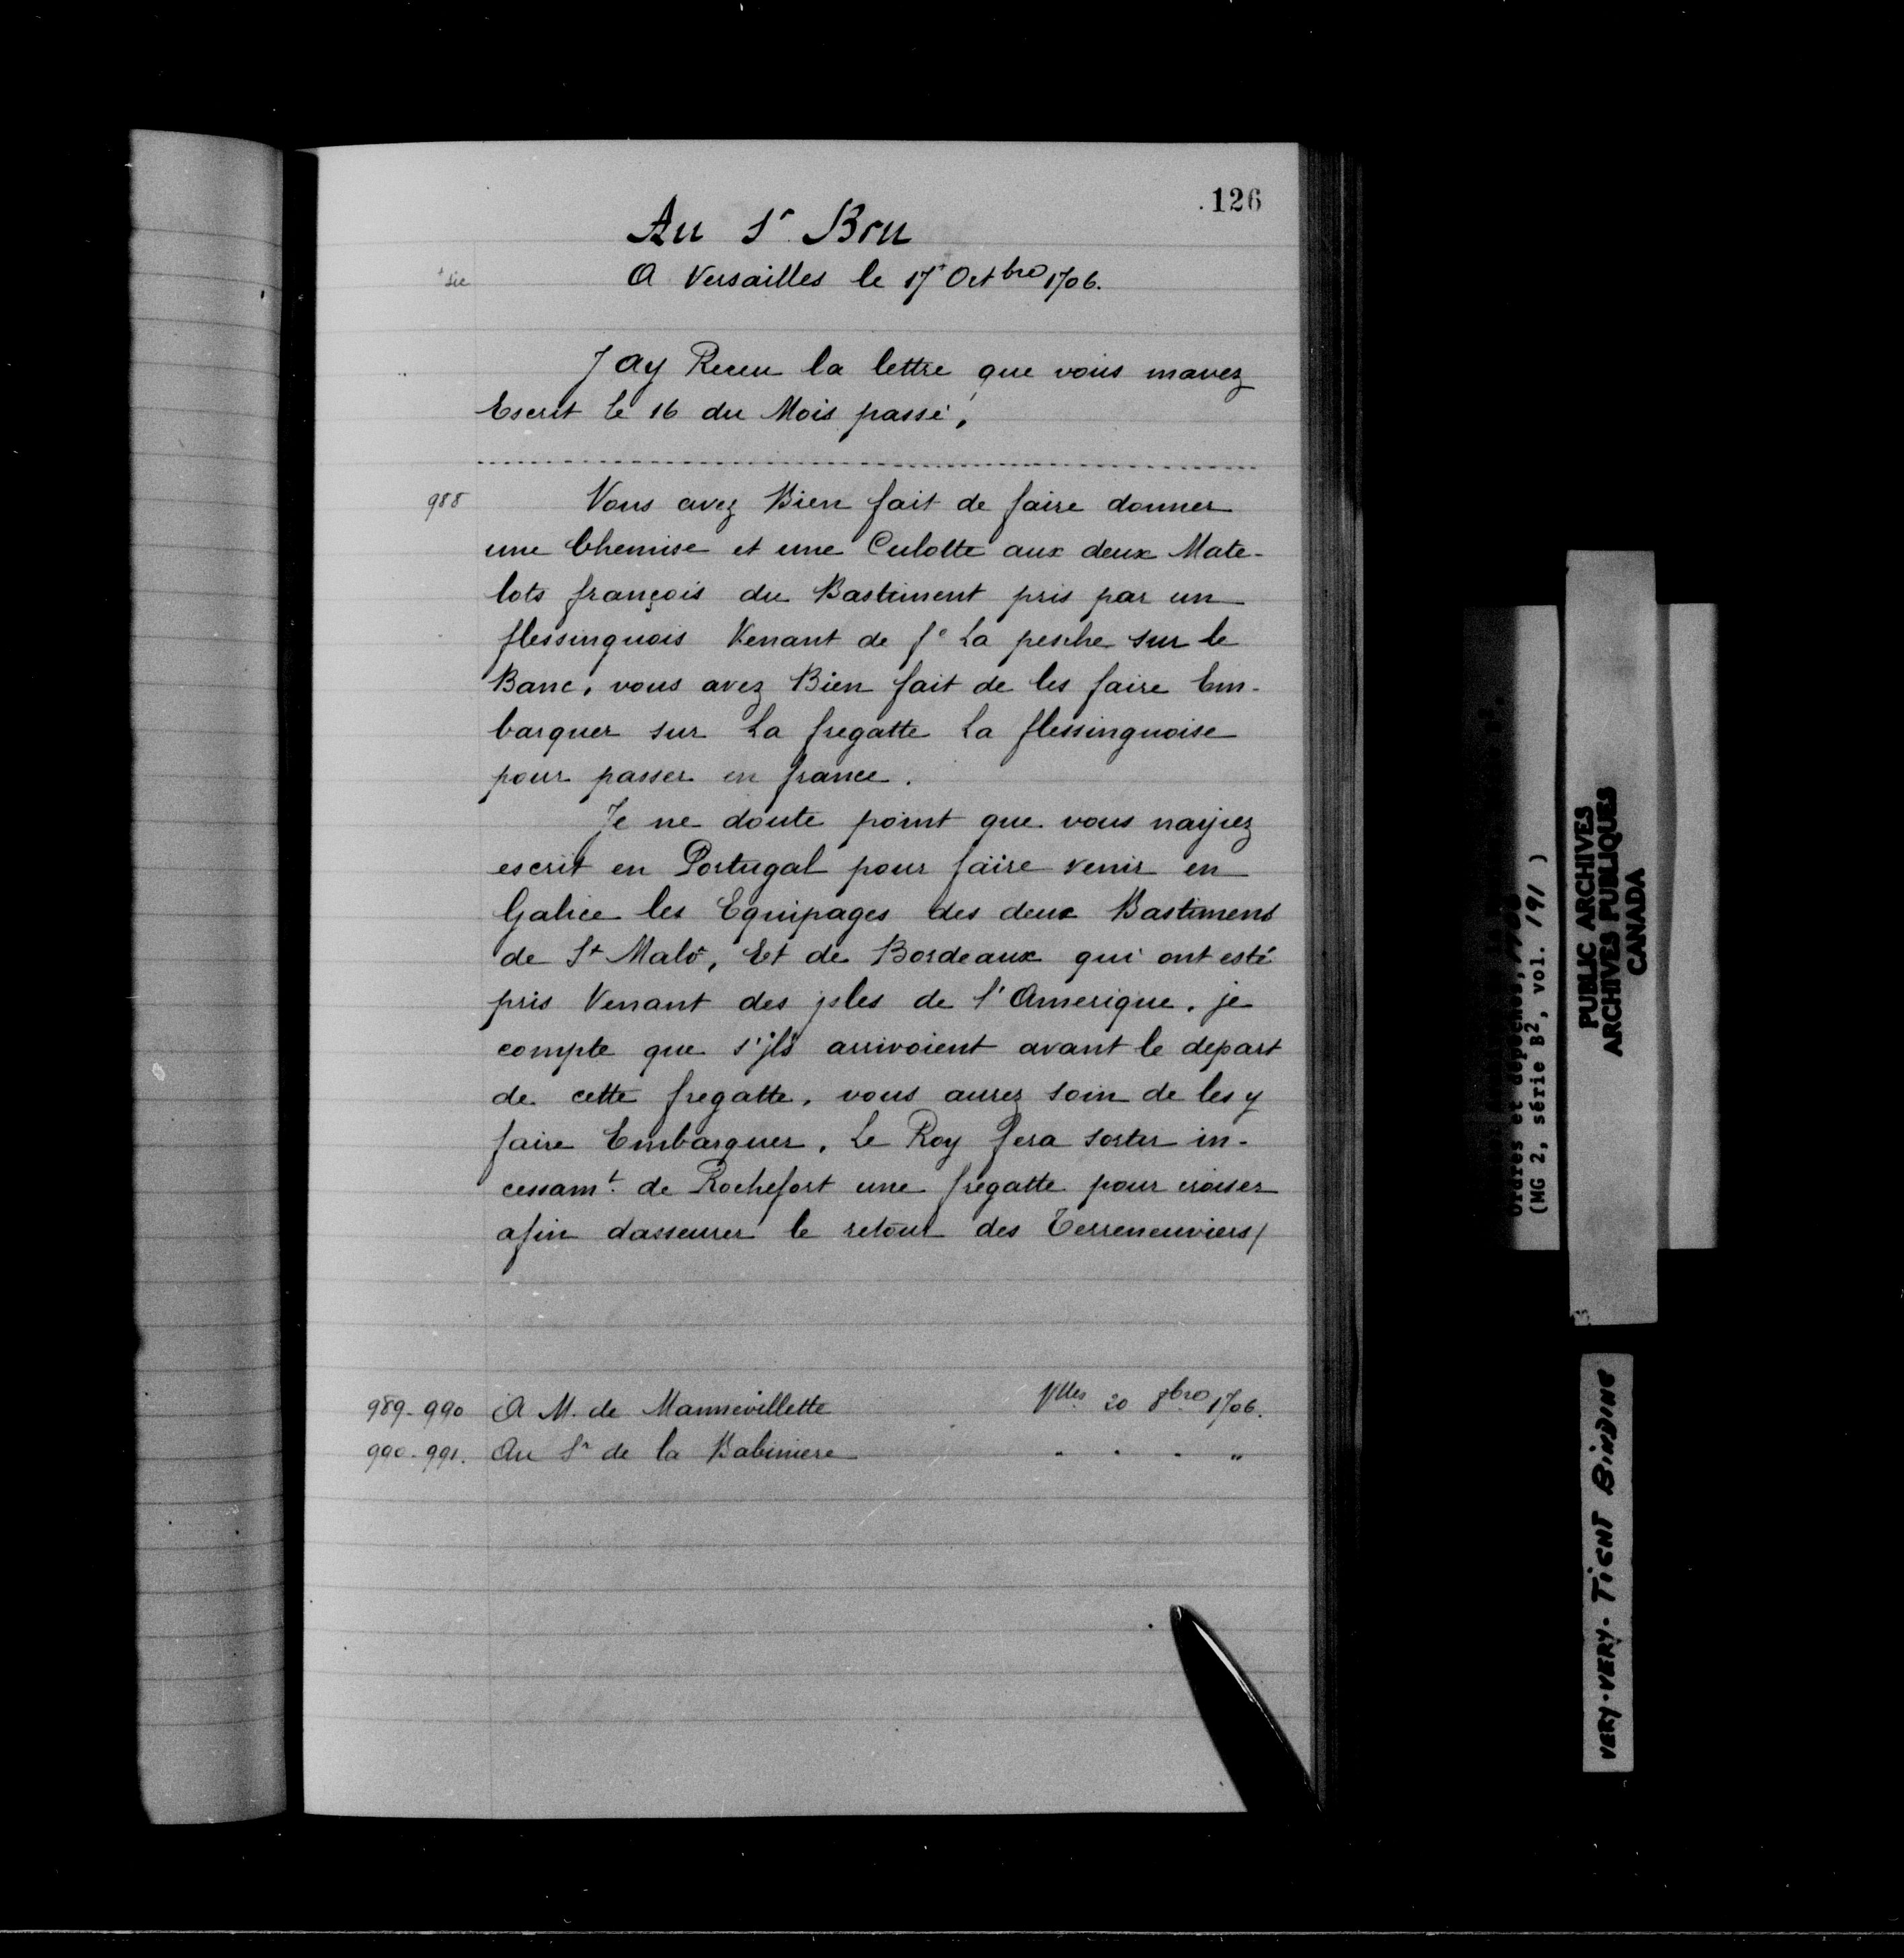 126
Au Sr Bru
+ sic
A Versailles le 17+ Octbre 1706.
Jay Receu la lettre que vous mavez
Escrit le 16 du Mois passé,
988
Vous avez Bien fait de faire donner
une Chemise et une Culotte aux deux Mate-
lots françois du Bastiment pris par un
flessinguois Venant de fe La pesche sur le
Banc, vous avez Bien fait de les faire Em-
barquer sur La fregatte La flessinguoise
pour passer en france.
Je ne doute point que vous nayiez
escrit en Portugal pour faire venir en
Galice les Equipages des deux Bastimens
de St Malo, Et de Bordeaux qui ont esté
pris Venant des jsles de l'Amerique. je
compte que s'jls arrivoient avant le depart
de cette fregatte, vous aurez soin de les y
faire Embarquer. Le Roy fera sortir in-
cessamt. de Rochefort une fregatte pour croiser
afin dasseurer le retour des Terreneuviers/
989-990 A M. de Mannevillette Vlles 20 8bre 1706.
990-991. Au Sr de la Babiniere " " " "
Ordres et dépêches,
(MG 2, série B2, vol. 191 )
PUBLIC ARCHIVES
ARCHIVES PUBLIQUES
CANADA
VERY-VERY-TIGHT BINDING